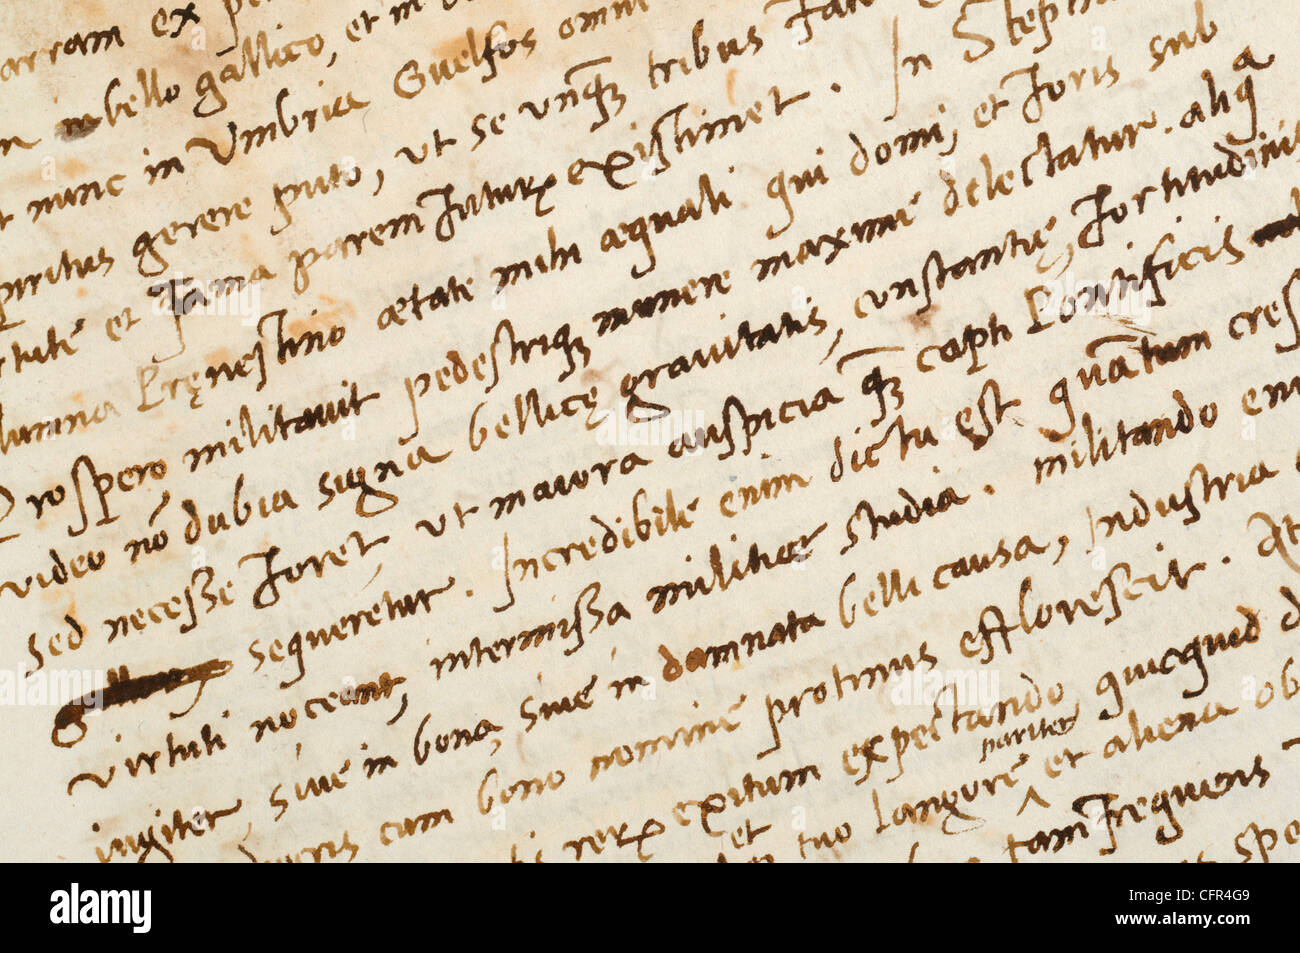 arram ex
in bello gallico, et in
nunc in Umbria Guelfos omni
spiritus gerere puto, ut se unq̃ꝫ tribus
et Fama parem Futurꝝ existimet. In Steph
lumna Pręnestino ætate mihi æquali qui domi, et Foris sub
Prospero militavit pedestriqꝫ munere maxime delectatur. aliq̃
video nõ dubia signa bellicę gravitatis, constantię, Fortitudinis
sed necesse Foret, ut maiora auspicia q̃ꝫ capti Pontificis
sequeretur. Incredibile enim dictu est quãtum cres
virtuti noceant, intermissa militiæ studia. militando eni
iugiter, sive in bona, sive in damnata belli causa, Industria
cum bono nomine protinus efflorescit. At
rerꝝ exitum expectando quicquid
et pariter
tuo langore ^ et aliena ob
tam Frequens
alamy
Image ID: CFR4G9
www.alamy.com